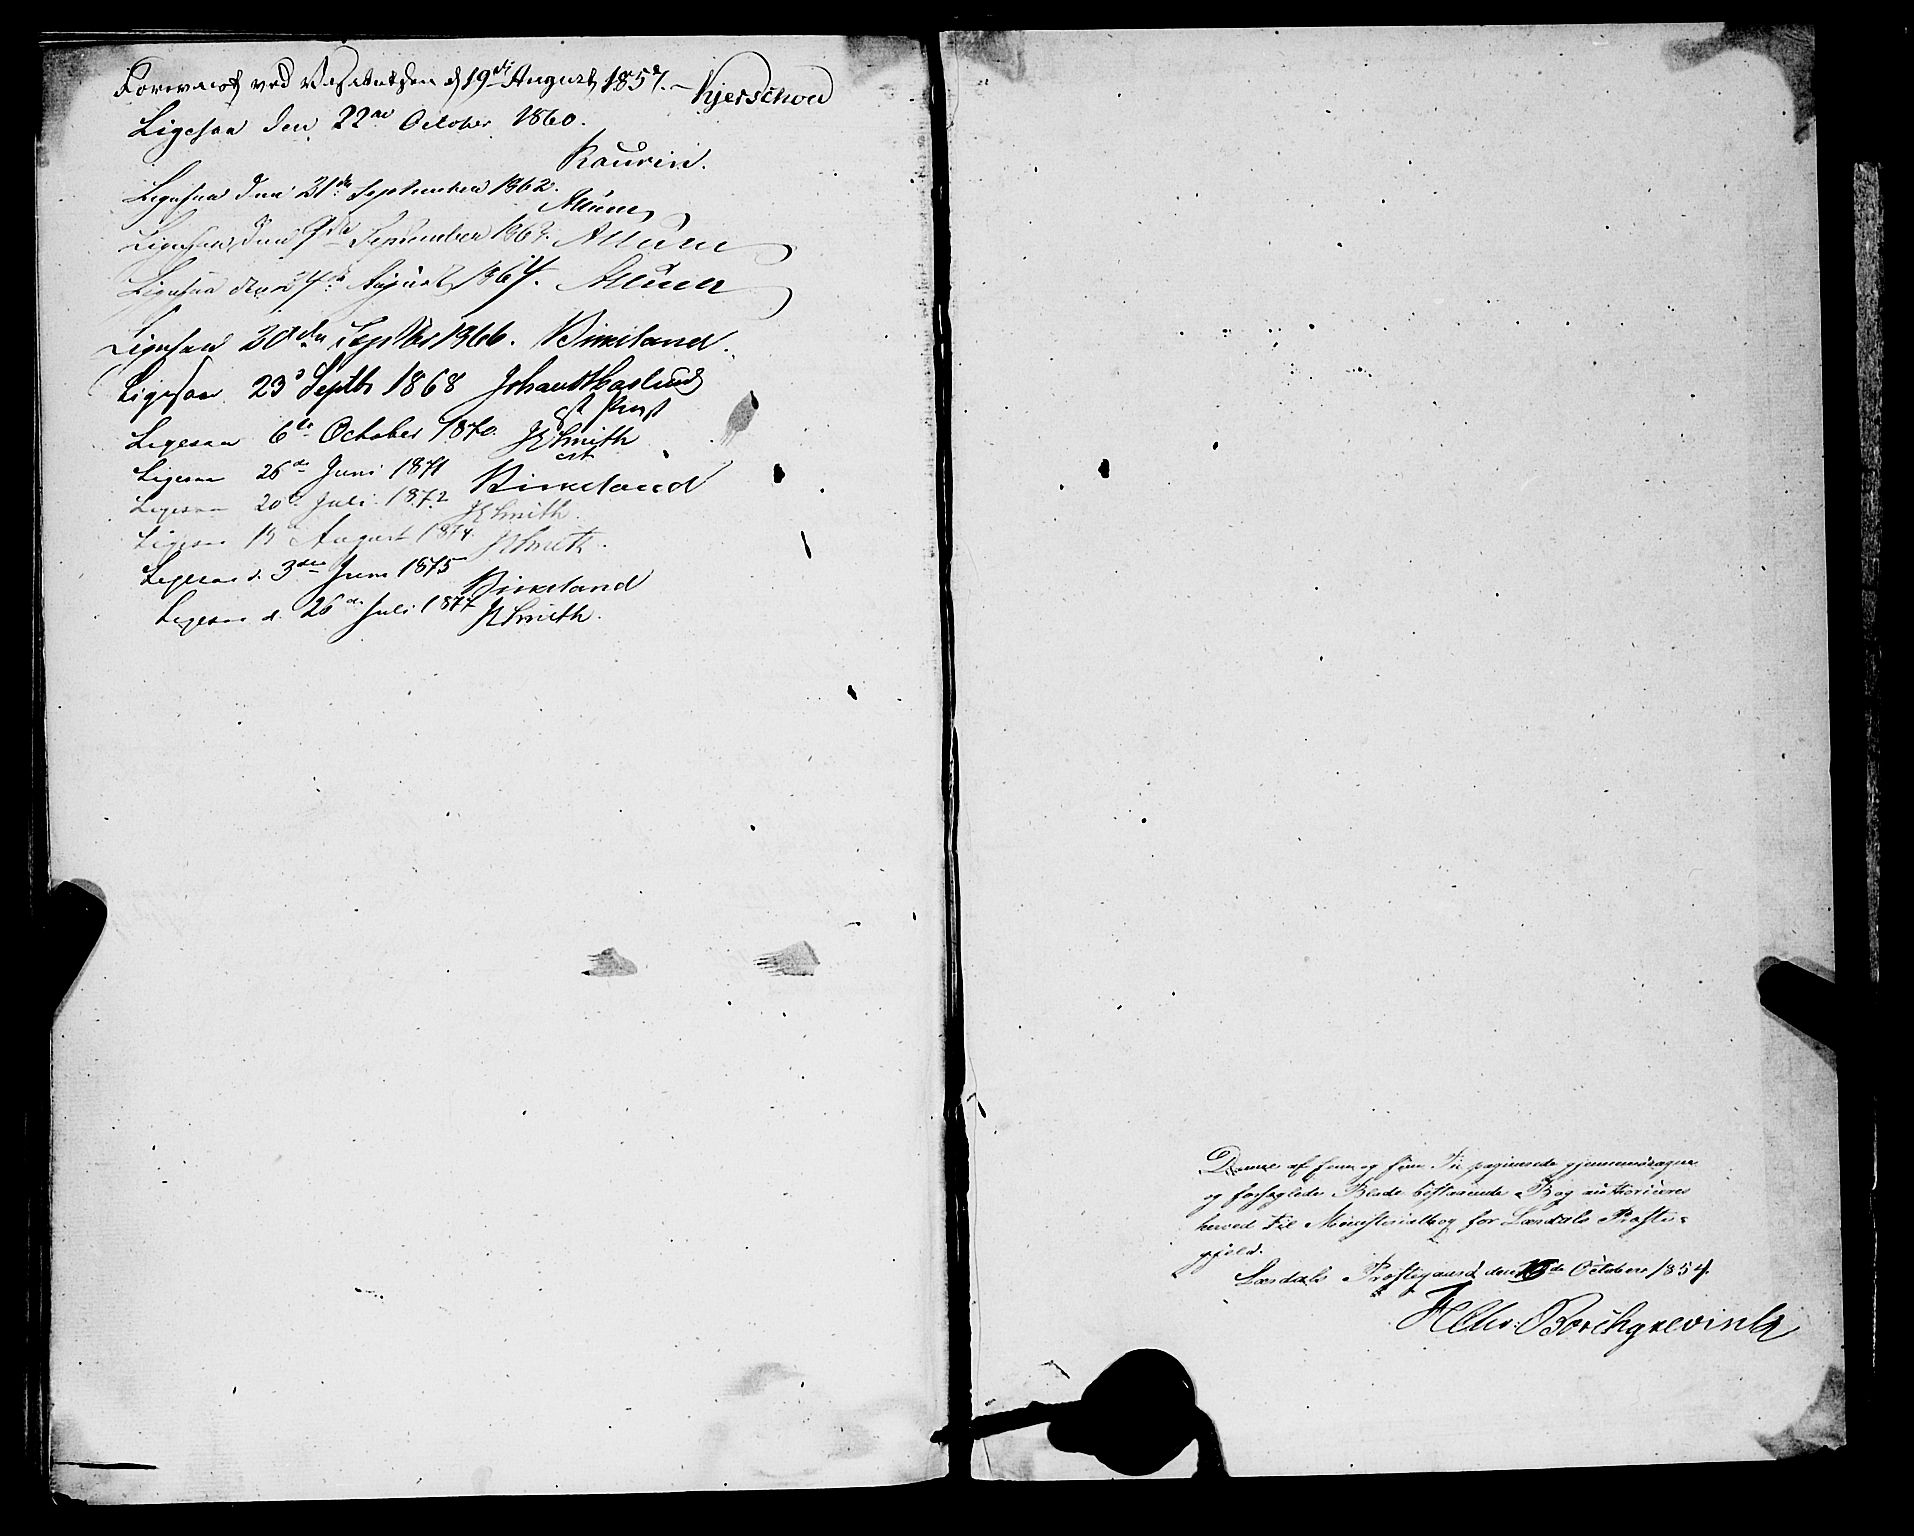 Foreviist ved Visitatsen d 19de August 1857. – Kjerschow
Ligesaa den 22de October 1860.
Kaurin.
Ligesaa den 21de September 1862.
Aaune
Ligesaa den 9de September 186
Ligesaa den 24de August 1864.
Ligesaa 20de Septbr 1866. Birkeland.
Ligesaa 23d Septbr 1868 Johan Haslund
cst Provst
Ligesaa 6te October 1870. JESmith
cst
Ligesaa 26de Juni 1871 Birkeland
Ligesaa 20de Juli 1872 JESmith.
Ligesaa 13 August 1874. JESmith.
Ligesaa d. 3die Juni 1875 Birkeland
Ligesaa d. 26de Juli 1877 JESmith.
Denne af fem og fem Ti paginerede gjennemdragne
og forseglede Blade bestaaende Bog authoriseres
herved til Ministerialbog for Lærdals Præste-
gjeld.
Lærdals Præstegaard den 16de October 1854.
HChr: Borchgrevink